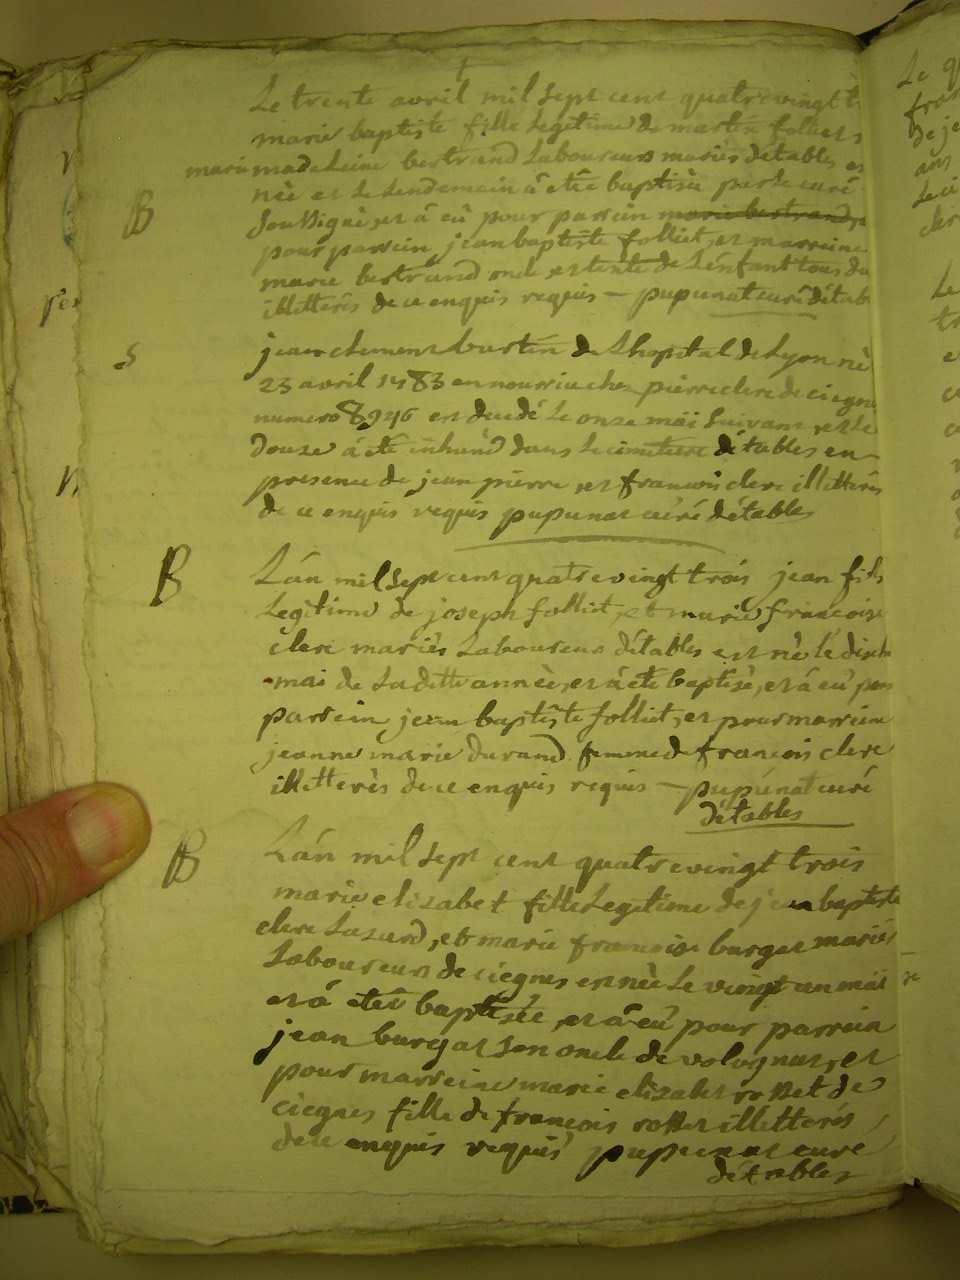 Le trente avril mil sept cent quatrevingt t
marie baptiste fille Legitime de martin folliet
marie madeleine bertrand Laboureurs mariés détables es
née et le Lendemain â etée baptisée par le curé
B
Soussigné, et â eû pour parrein marie bertrand,
pour parrein jean baptiste folliet, et marreine
marie bertrand oncle et tente de Lenfant tous du
illitterés de ce enquis requis — pupunat curé détab
S
jean clement bustin de Lhopital de Lyon né
23 avril 1783 en nourrice chez pierre clerc de ciegne
numero 8946 est decedé Le onze mai Suivant, et le
Douze â été inhumé dans le cimetiere détables en
presence de jean pierre et francois clerc illitterés
de ce enquis requis pupunat curé détables
B
Lán mil sept cent quatrevingt trois jean fils
Legitime de joseph folliet, et marie francoise
clerc mariés Laboureurs détables est né le dixh
mai de Laditte année, et â été baptisé, et â eû pour
parrein jean baptiste folliet, et pour marreine
jeanne marie durand femme de francois clerc
illitterés de ce enquis requis — pupunat curé
détables
B
Lán mil sept cent quatrevingt trois
marie elizabet fille Legitime de jean baptiste
clerc Lazard, et marie francoise burgat mariés
Laboureurs de ciegnes est née Le vingt un mai
et â etée baptisée, et â eû pour parrein
jean burgat son oncle de volognat, et
pour marreine marie elizabet rosset de
ciegnes fille de francois rosset illitterés
de ce enquis requis pupunat curé
détables